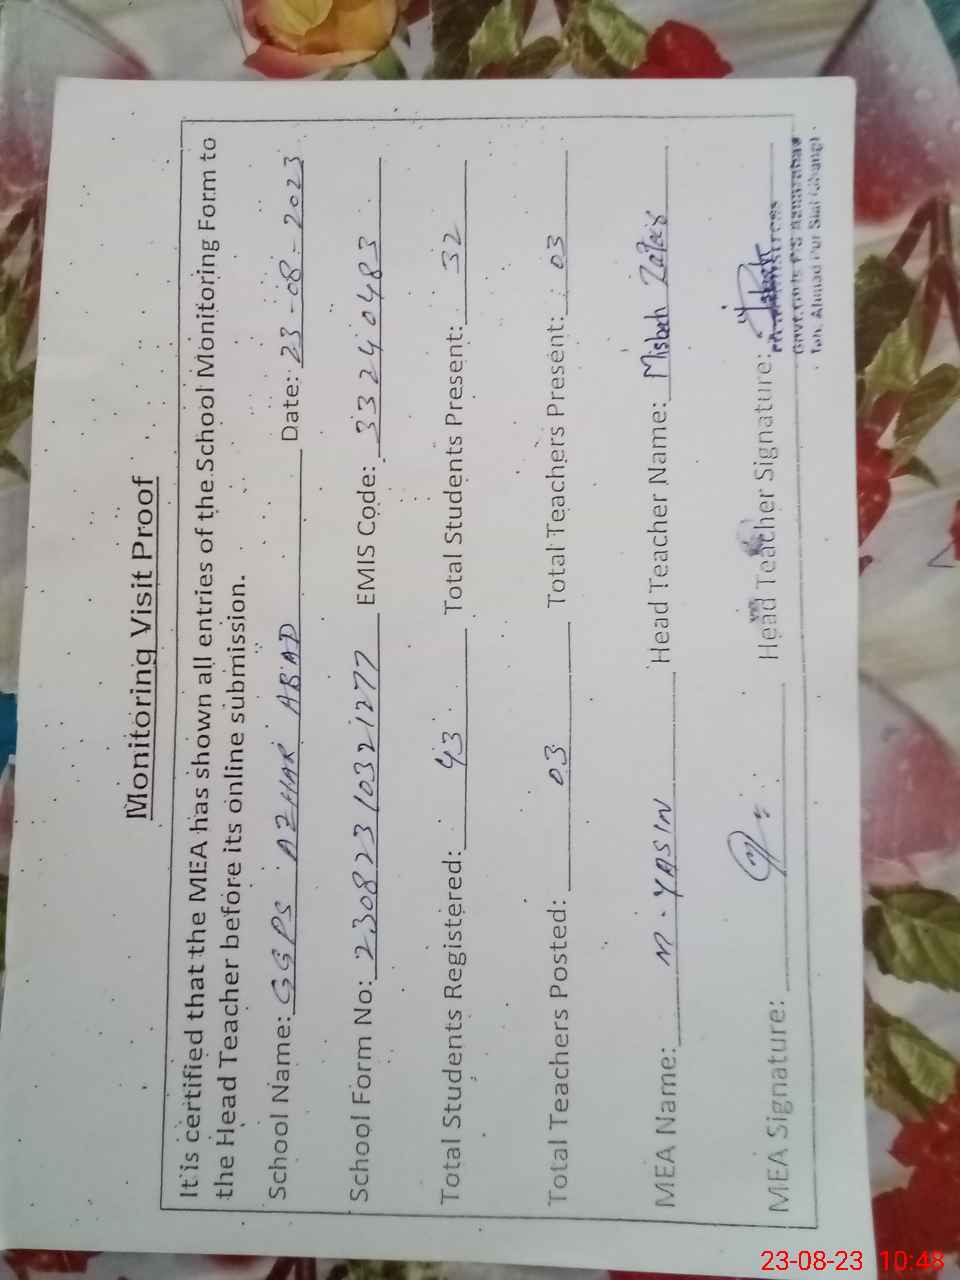 Monitoring Visit Proof
It is certified that the MEA has shown all entries of the School Monitoring Form to
the Head Teacher before its online submission.
School Name: GGPS AZHAR ABAD Date: 23-08-2023
School Form No: 230823 10321277 EMIS Code: 33240483
Total Students Registered: 43 Total Students Present: 32
Total Teachers Posted: 03 Total Teachers Present: 03
MEA Name: M. YASIN Head Teacher Name: Misbah Zafar
MEA Signature: Head Teacher Signature:
Govt. Girls P/S
Teh. Ahmad Pur Sial (Jhang)
23-08-23 10:48